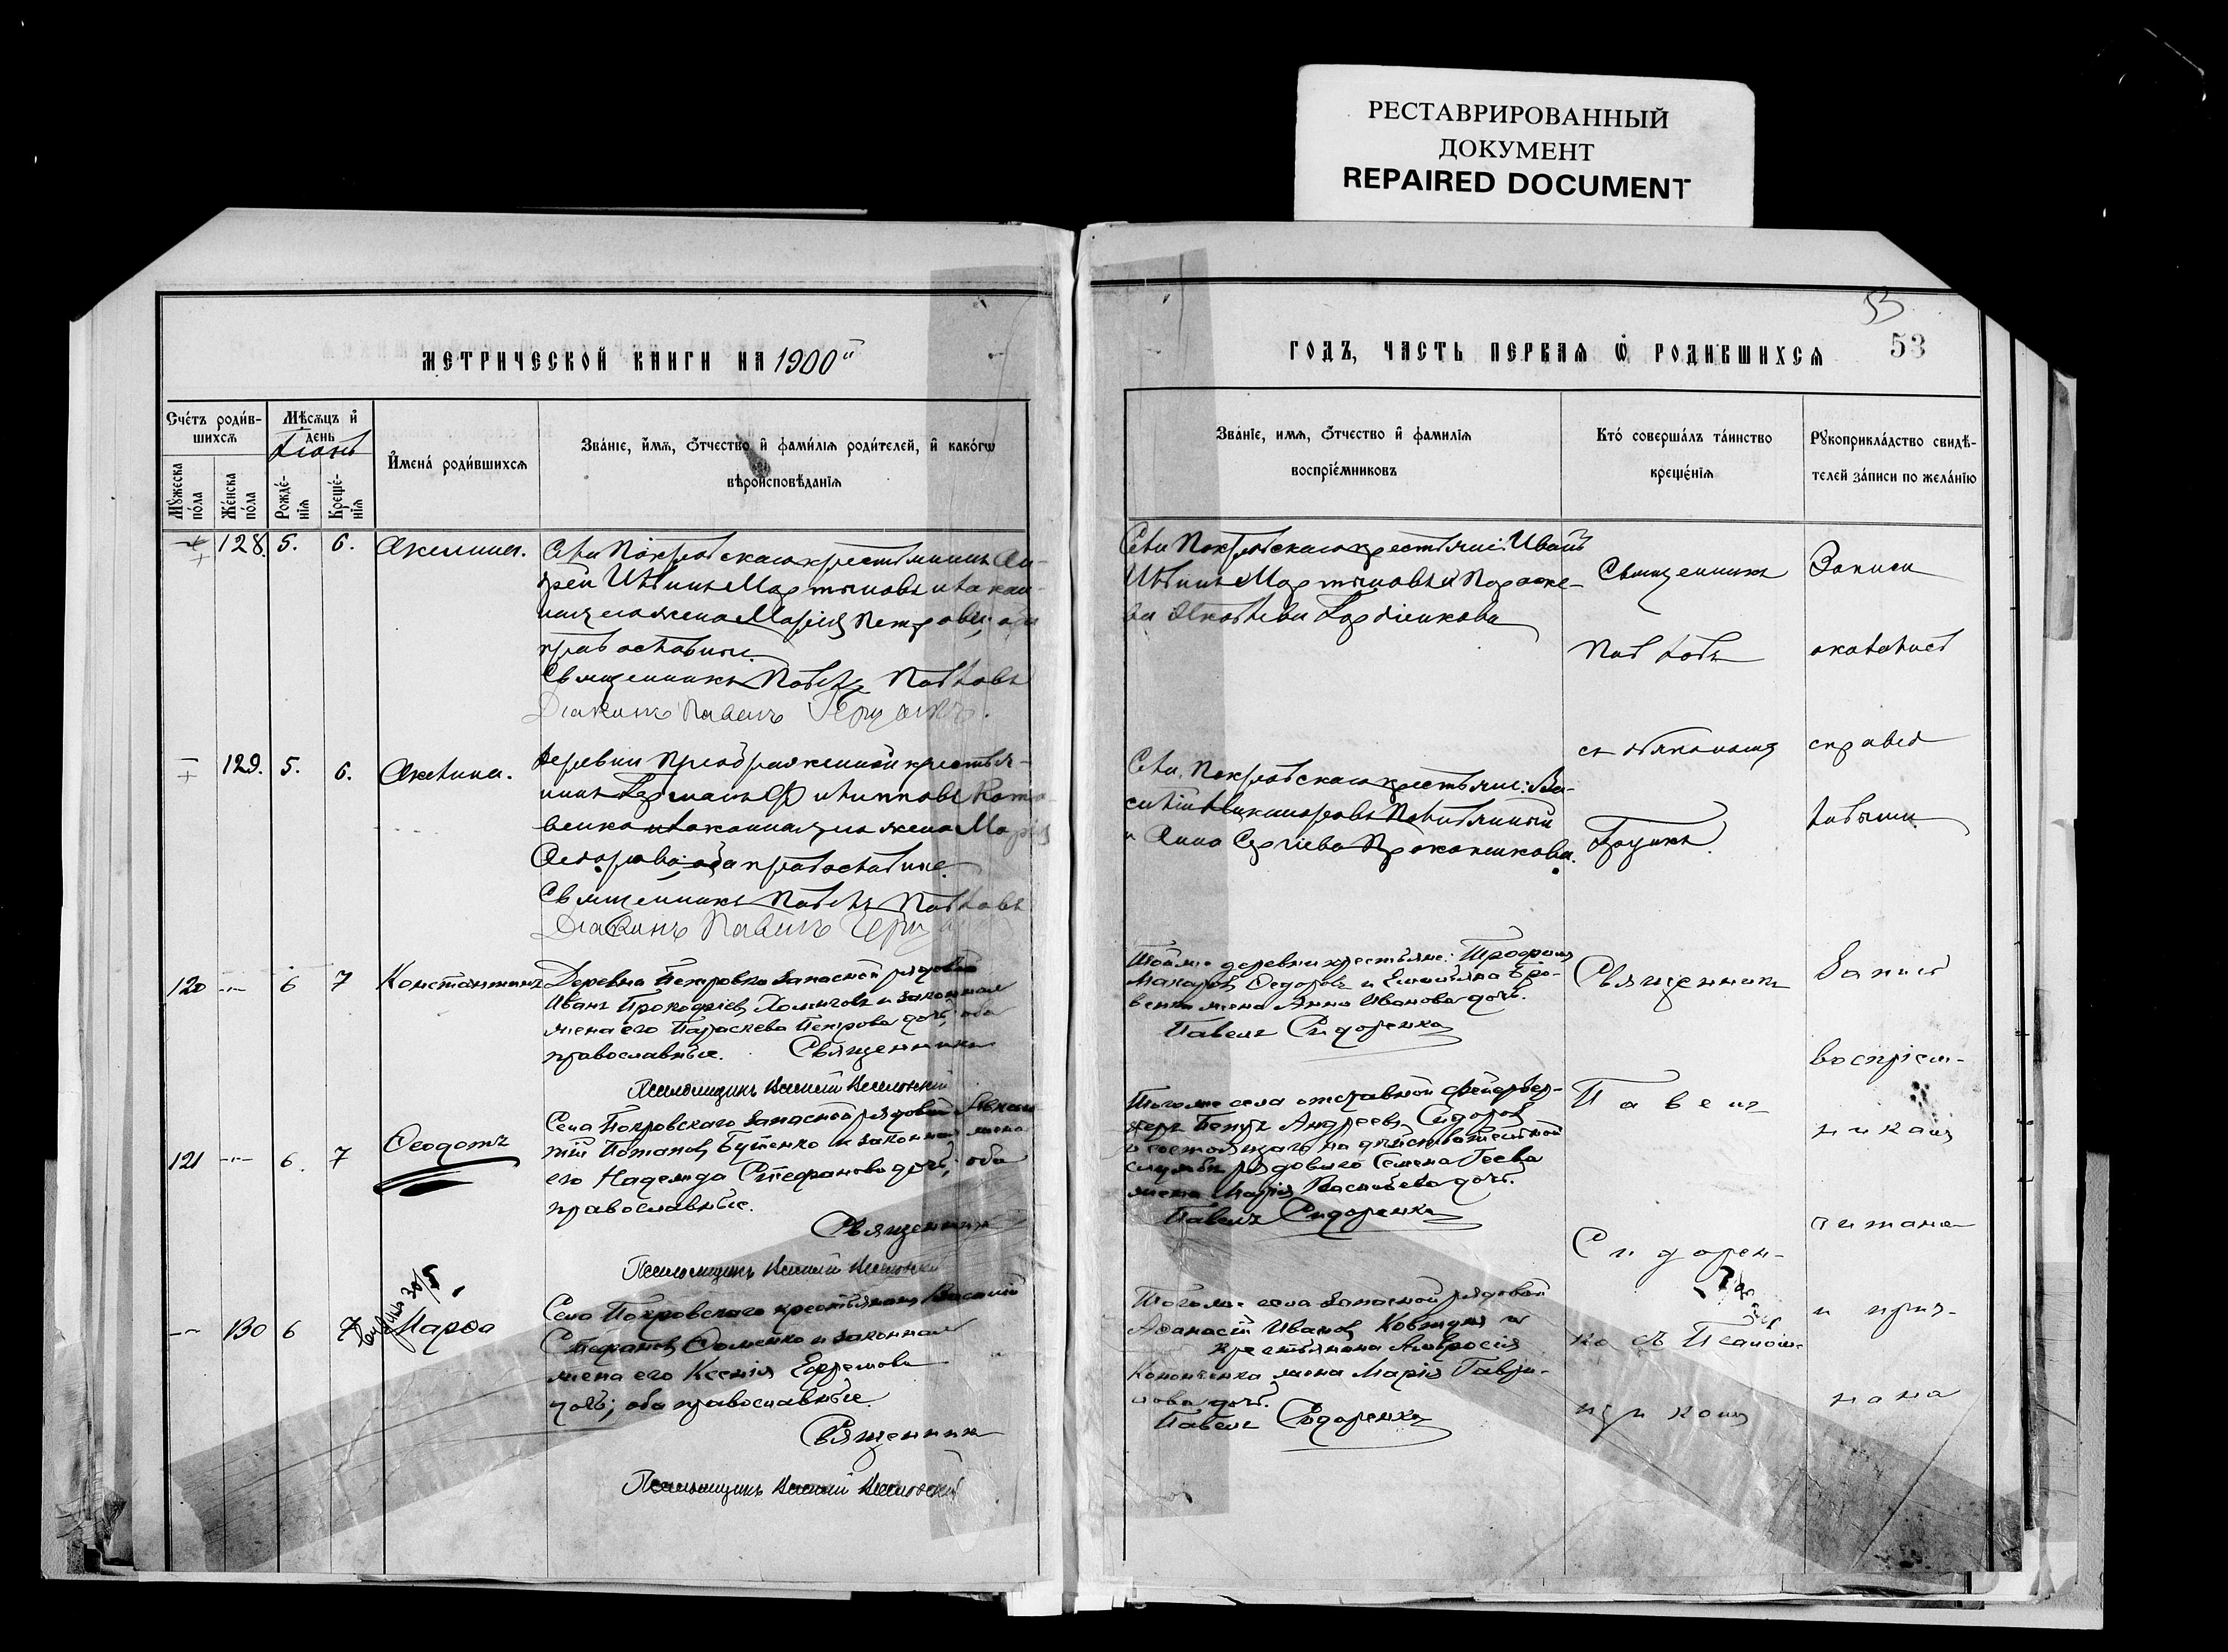 РЕСТАВРИРОВАННЫЙ
ДОКУМЕНТ
REPAIRED DOCUMENT
53
53
МЕТРИЧЕСКОЙ КНИГИ НА 1900й
ГОДЪ, ЧАСТЬ ПЕРВАЯ Ѿ РОДИВШИХСЯ
Счетъ родив-
шихся
Мѣсяцъ и
день
Мужеска пола
Женска пола
Рожде-
нія
Креще-
нія
Имена родившихся
Званіе, имя, отчество и фамилія родителей, и какогѡ
вѣроисповѣданія
Званіе, имя, отчество и фамилія
воспріемниковъ
Кто совершалъ таинство
крещенія
Рукоприкладство свидѣ-
телей записи по желанію
128. 5. 6. Акилина.
Села Покровскаго крестьянинъ Ан-
дрей Ивановъ Мартыновъ и закон-
ная его жена Марія Петрова; оба
православные.
Священникъ Павелъ Павловъ
Діаконъ Павелъ
Села Покровскаго крестьяне: Иванъ
Ивановъ Мартыновъ и Параске-
ва Яковлева
Священникъ
Павловъ
съ діакономъ
Записи
129. 5. 6. Акилина.
Деревни Преображенной крестья-
нинъ Германъ Филипповъ
и законная его жена Марія
Ѳедорова; оба православные.
Священникъ Павелъ Павловъ
Діаконъ Павелъ
Села Покровскаго крестьяне: Ва-
силій Никаноровъ
и Анна Сергіева
120 6 7 Константинъ
Деревни Петровки запасной рядовой
Иванъ Прокофіевъ и законная
жена его Параскева Петрова дочь; оба
православные. Священникъ
Псаломщикъ Василій
Тойже деревни крестьяне: Трофимъ
Макаровъ Ѳедоровъ и
жена Анна Иванова дочь.
Павелъ Сидоренко
Священникъ
Павелъ
Сидорен-
ко съ Псалом-
щикомъ
Записи
воспріем-
никамъ
читана
и приз-
нана
121 6. 7 Ѳеодотъ
Села Покровскаго запасной рядовой
Потаповъ Бутенко и законная жена
его Надежда Стефанова дочь; оба
православные.
Священникъ
Псаломщикъ Василій
Тогоже села отставной фейервер-
керъ Петръ Андреевъ Сидоровъ
и состоящаго на дѣйствительной
службѣ рядового Семена Геева
жена Марія Васильева дочь.
Павелъ Сидоренко
130 6 7 Марѳа
Села Покровскаго крестьянинъ Василій
Стефановъ Ѳоменко и законная
жена его Ксенія Ефремова
дочь; оба православные.
Священникъ
Псаломщикъ Василій
Тогоже села запасной рядовой
Аѳанасій Ивановъ Ковтунъ и
крестьянина Амвросія
Кононенка жена Марія Гаври-
лова дочь.
Павелъ Сидоренко